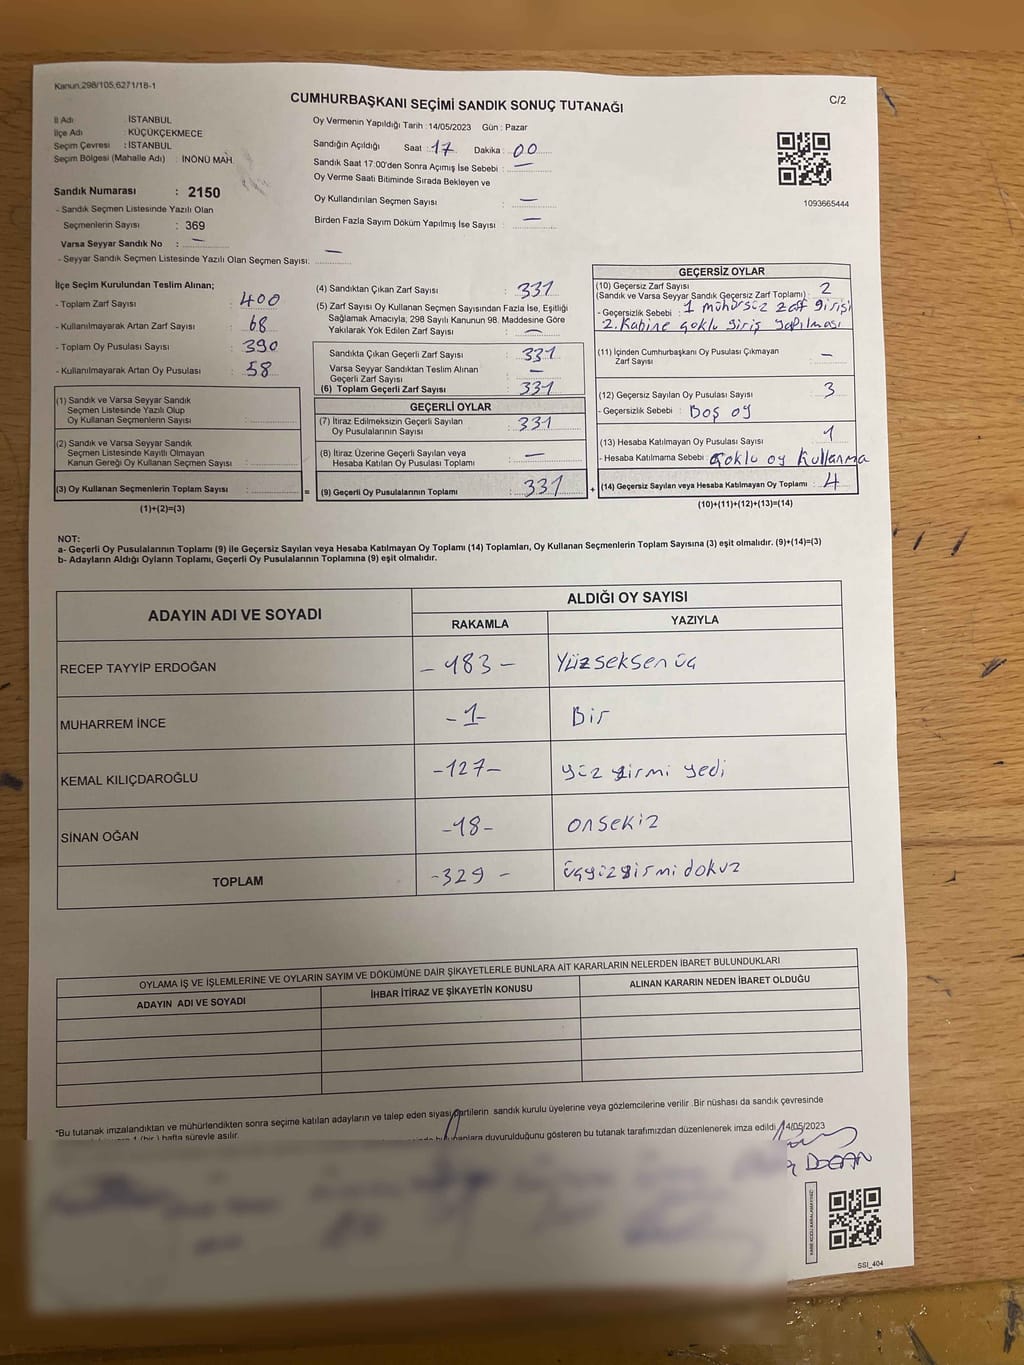 Kanun;298/105;6271/18-1
C/2
CUMHURBAŞKANI SEÇİMİ SANDIK SONUÇ TUTANAĞI
İl Adı : İSTANBUL
İlçe Adı : KÜÇÜKÇEKMECE
Seçim Çevresi : İSTANBUL
Seçim Bölgesi (Mahalle Adı) : İNÖNÜ MAH.
Sandık Numarası : 2150
- Sandık Seçmen Listesinde Yazılı Olan
Seçmenlerin Sayısı : 369
Varsa Seyyar Sandık No : —
- Seyyar Sandık Seçmen Listesinde Yazılı Olan Seçmen Sayısı: —
Oy Vermenin Yapıldığı Tarih : 14/05/2023 Gün : Pazar
Sandığın Açıldığı Saat : 17 Dakika : 00
Sandık Saat 17:00'den Sonra Açımış İse Sebebi : —
Oy Verme Saati Bitiminde Sırada Bekleyen ve
Oy Kullandırılan Seçmen Sayısı : —
Birden Fazla Sayım Döküm Yapılmış İse Sayısı : —
1093665444
İlçe Seçim Kurulundan Teslim Alınan;
- Toplam Zarf Sayısı : 400
- Kullanılmayarak Artan Zarf Sayısı : 68
- Toplam Oy Pusulası Sayısı : 390
- Kullanılmayarak Artan Oy Pusulası : 58
(1) Sandık ve Varsa Seyyar Sandık
Seçmen Listesinde Yazılı Olup
Oy Kullanan Seçmenlerin Sayısı :
(2) Sandık ve Varsa Seyyar Sandık
Seçmen Listesinde Kayıtlı Olmayan
Kanun Gereği Oy Kullanan Seçmen Sayısı :
(3) Oy Kullanan Seçmenlerin Toplam Sayısı : =
(1)+(2)=(3)
(4) Sandıktan Çıkan Zarf Sayısı : 331
(5) Zarf Sayısı Oy Kullanan Seçmen Sayısından Fazla İse, Eşitliği
Sağlamak Amacıyla; 298 Sayılı Kanunun 98. Maddesine Göre
Yakılarak Yok Edilen Zarf Sayısı : —
Sandıkta Çıkan Geçerli Zarf Sayısı : 331
Varsa Seyyar Sandıktan Teslim Alınan
Geçerli Zarf Sayısı : —
(6) Toplam Geçerli Zarf Sayısı : 331
GEÇERLİ OYLAR
(7) İtiraz Edilmeksizin Geçerli Sayılan
Oy Pusulalarının Sayısı : 331
(8) İtiraz Üzerine Geçerli Sayılan veya
Hesaba Katılan Oy Pusulası Toplamı : —
(9) Geçerli Oy Pusulalarının Toplamı : 331 +
GEÇERSİZ OYLAR
(10) Geçersiz Zarf Sayısı : 2
(Sandık ve Varsa Seyyar Sandık Geçersiz Zarf Toplamı)
- Geçersizlik Sebebi : 1 mühürsüz zarf girişi
2. Kabine çoklu giriş yapılması
(11) İçinden Cumhurbaşkanı Oy Pusulası Çıkmayan
Zarf Sayısı : —
(12) Geçersiz Sayılan Oy Pusulası Sayısı : 3
- Geçersizlik Sebebi : Boş oy
(13) Hesaba Katılmayan Oy Pusulası Sayısı : 1
- Hesaba Katılmama Sebebi : Çoklu oy kullanma
(14) Geçersiz Sayılan veya Hesaba Katılmayan Oy Toplamı : 4
(10)+(11)+(12)+(13)=(14)
NOT:
a- Geçerli Oy Pusulalarının Toplamı (9) ile Geçersiz Sayılan veya Hesaba Katılmayan Oy Toplamı (14) Toplamları, Oy Kullanan Seçmenlerin Toplam Sayısına (3) eşit olmalıdır. (9)+(14)=(3)
b- Adayların Aldığı Oyların Toplamı, Geçerli Oy Pusulalarının Toplamına (9) eşit olmalıdır.
ADAYIN ADI VE SOYADI
ALDIĞI OY SAYISI
RAKAMLA YAZIYLA
RECEP TAYYİP ERDOĞAN – 183 – Yüzseksen üç
MUHARREM İNCE -1- Bir
KEMAL KILIÇDAROĞLU -127- yüz yirmi yedi
SİNAN OĞAN -18- onsekiz
TOPLAM -329 - üçyüzyirmi dokuz
OYLAMA İŞ VE İŞLEMLERİNE VE OYLARIN SAYIM VE DÖKÜMÜNE DAİR ŞİKAYETLERLE BUNLARA AİT KARARLARIN NELERDEN İBARET BULUNDUKLARI
ADAYIN ADI VE SOYADI İHBAR İTİRAZ VE ŞİKAYETİN KONUSU ALINAN KARARIN NEDEN İBARET OLDUĞU
*Bu tutanak imzalandıktan ve mühürlendikten sonra seçime katılan adayların ve talep eden siyasi partilerin sandık kurulu üyelerine veya gözlemcilerine verilir .Bir nüshası da sandık çevresinde
1 (bir) hafta süreyle asılır.
duyurulduğunu gösteren bu tutanak tarafımızdan düzenlenerek imza edildi. 14/05/2023
DOĞAN
SSI_404